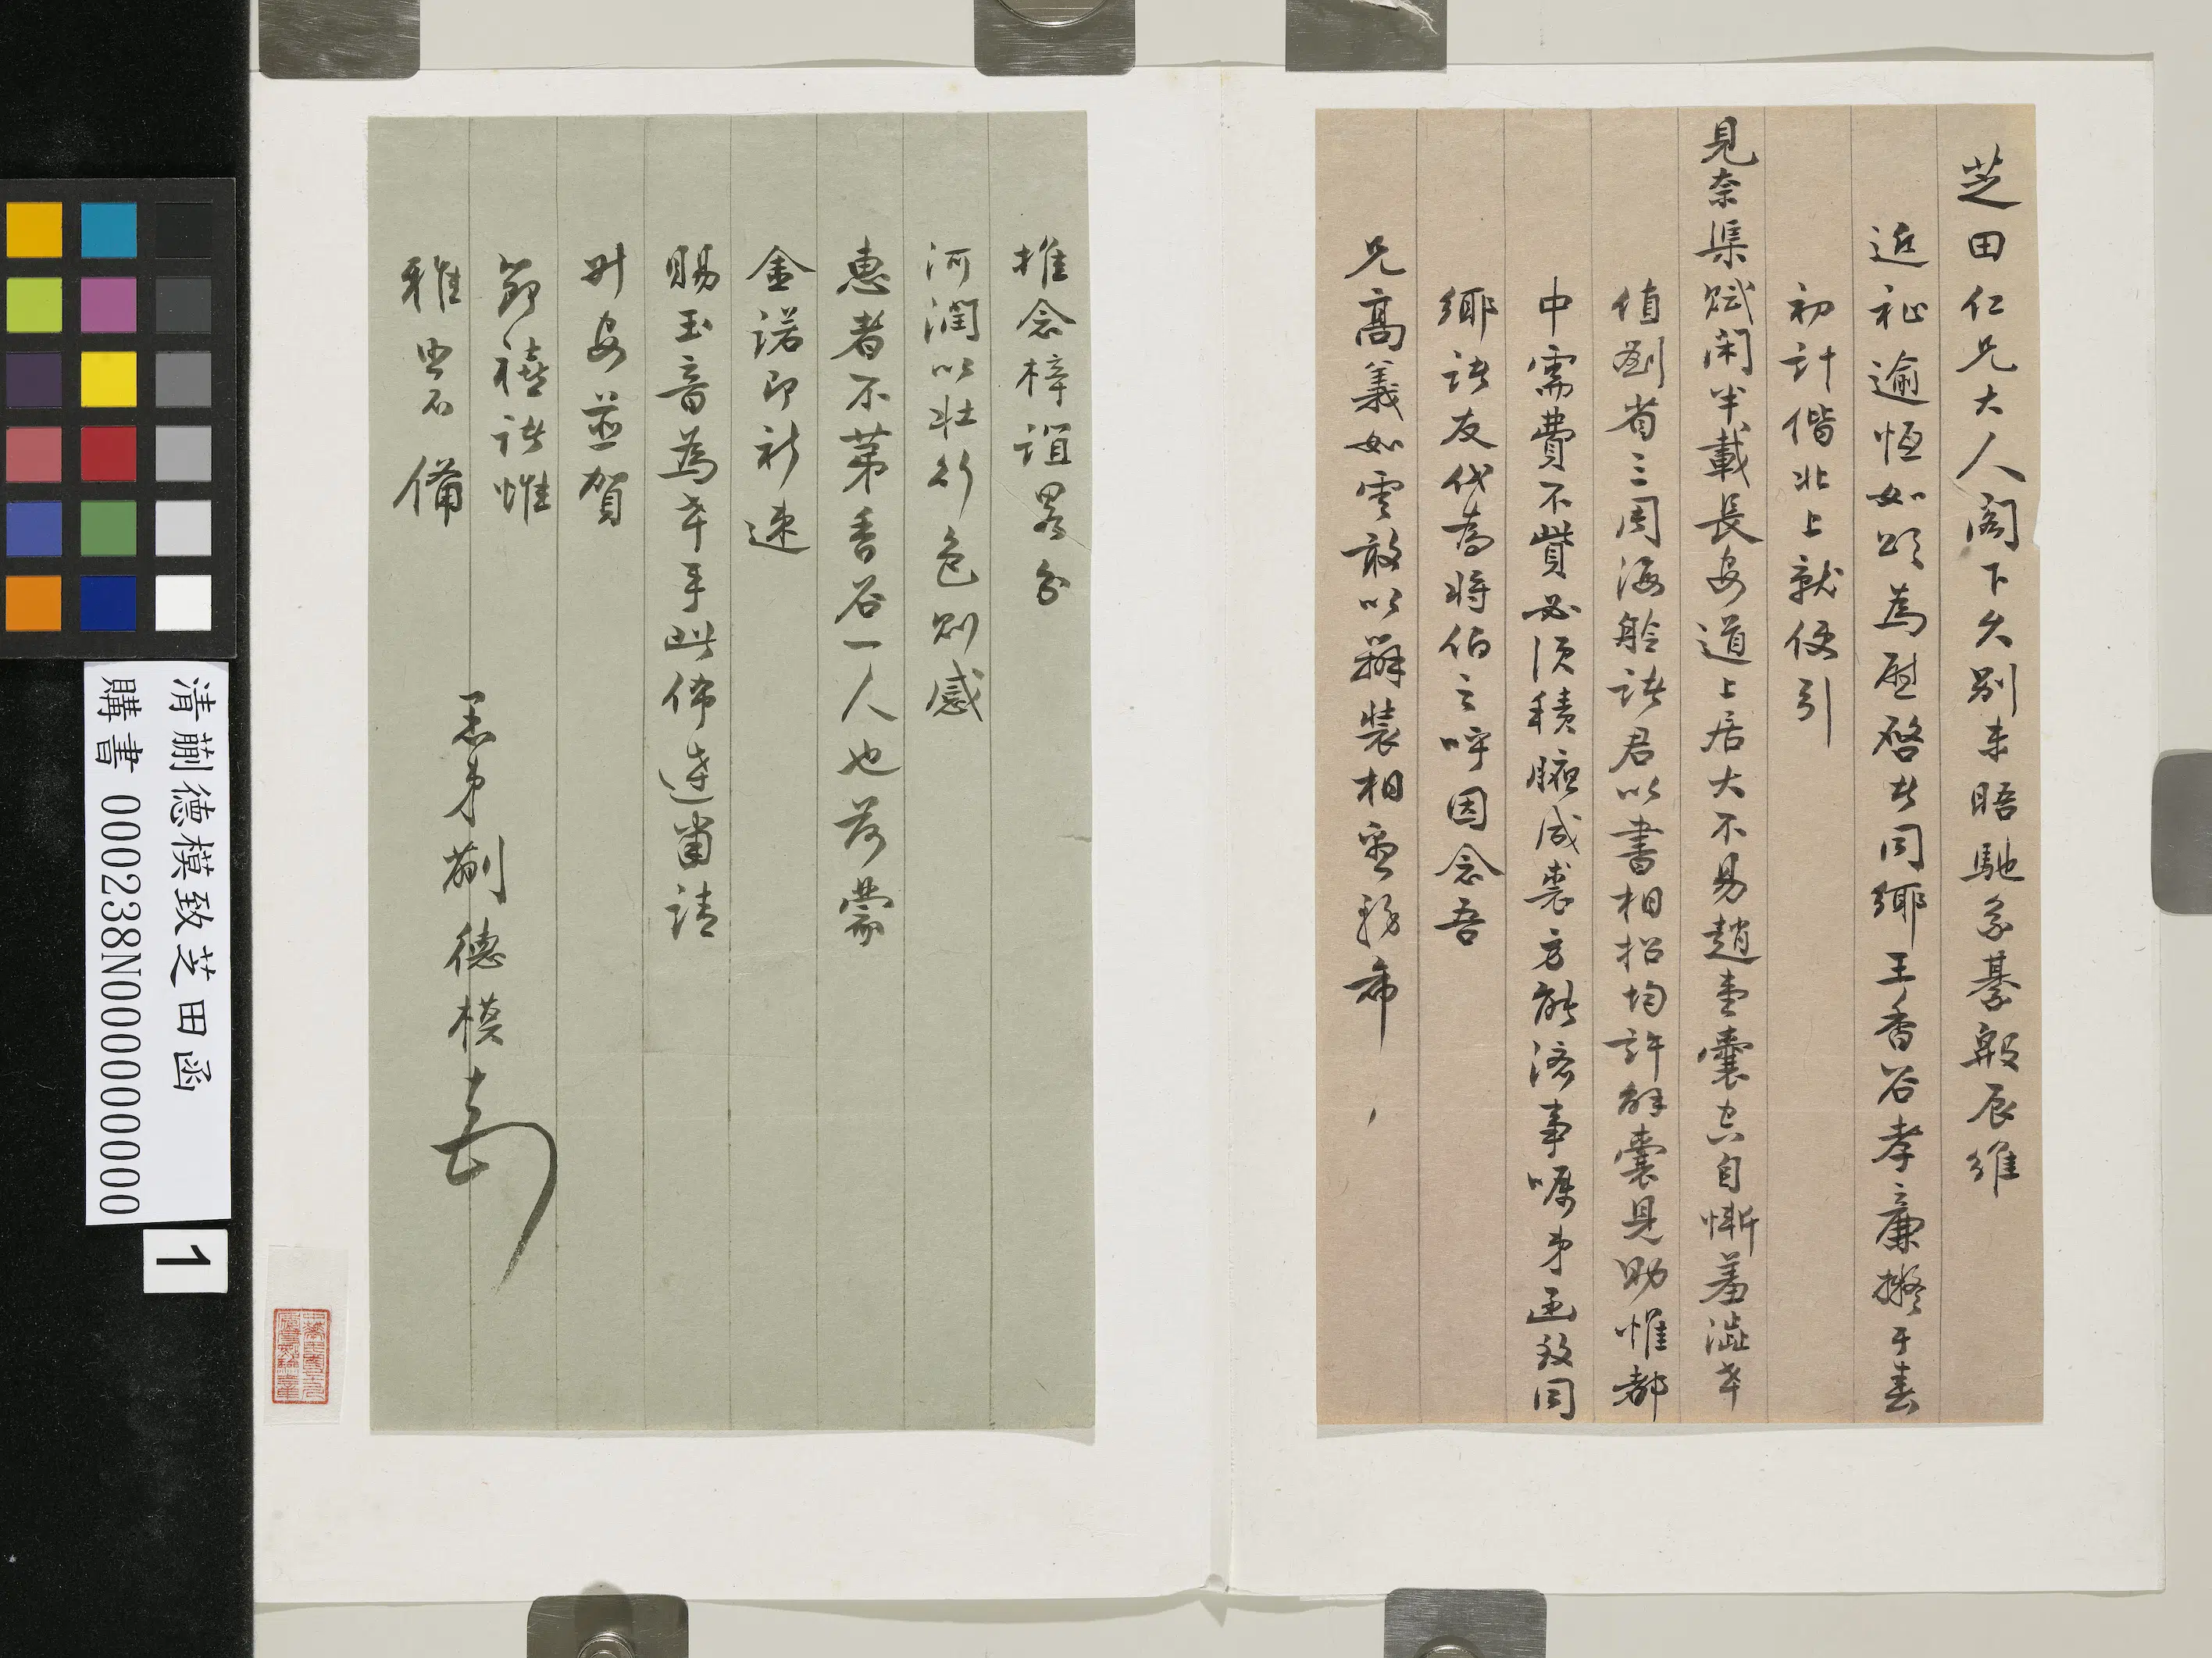 芝田仁兄大人閣下久別未晤馳系綦殷辰維
近祉逾恆如頌為慰啓者同鄉王香谷孝廉擬于春
初計偕北上就便引
見奈渠賦閑半載長安道上居大不易趙壹囊空自慚羞澀幸
值劉省三周海舲諸君以書相招均許解囊見助惟都
中需費不貲必須積腋成裘方能濟事囑弟函致同
鄉諸友代為將伯之呼因念吾
兄高義如雲敢以辦裝相 務希
推念梓誼畧分
河潤以壯行色則感
惠者不第香谷一人也如蒙
金諾即祈速
賜玉音為幸手此佈達卽請
升安並賀
節禧諸惟
雅照不備
愚弟蒯德模
清蒯德模致芝田函
購書 000238N000000000
1